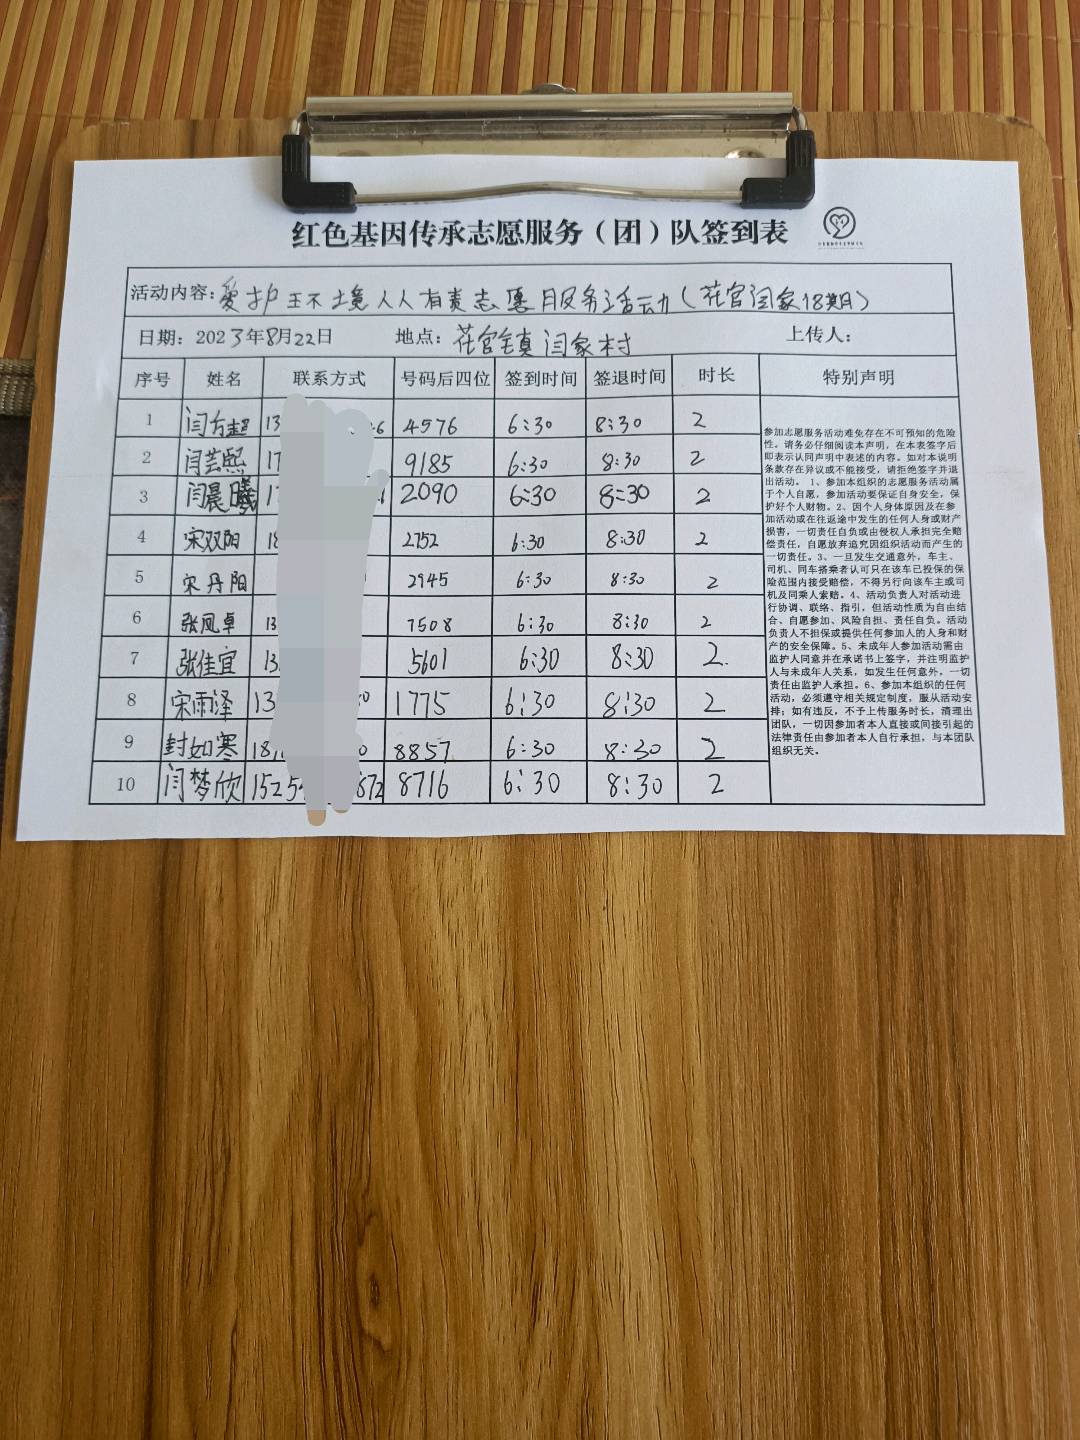 红色基因传承志愿服务（团）队签到表
活动内容：爱护环境人人有责志愿服务活动（花官闫家18期）
日期：2023年8月22日 地点：花官镇闫家村 上传人：
序号 姓名 联系方式 号码后四位 签到时间 签退时间 时长 特别声明
1 闫方超 13 6 4576 6:30 8:30 2
2 闫芸熙 17 9185 6:30 8:30 2
3 闫晨曦 17 2090 6:30 8:30 2
4 宋双阳 18 2752 6:30 8:30 2
5 宋丹阳 2945 6:30 8:30 2
6 张凤卓 13 7508 6:30 8:30 2
7 张佳宜 13 5601 6:30 8:30 2
8 宋雨泽 13 0 1775 6:30 8:30 2
9 封如寒 18 0 8857 6:30 8:30 2
10 闫梦欣 1525 872 8716 6:30 8:30 2
参加志愿服务活动难免存在不可预知的危险
性。请务必仔细阅读本声明，在本表签字后
即表示认同声明中表述的内容。如对本说明
条款存在异议或不能接受，请拒绝签字并退
出活动。 1、参加本组织的志愿服务活动属
于个人自愿，参加活动要保证自身安全，保
护好个人财物。2、因个人身体原因及在参
加活动或在往返途中发生的任何人身或财产
损害，一切责任自负或由侵权人承担完全赔
偿责任，自愿放弃追究因组织活动而产生的
一切责任。3、一旦发生交通意外，车主、
司机、同车搭乘者认可只在该车已投保的保
险范围内接受赔偿，不得另行向该车主或司
机及同乘人索赔。4、活动负责人对活动进
行协调、联络、指引，但活动性质为自由结
合、自愿参加、风险自担、责任自负。活动
负责人不担保或提供任何参加人的人身和财
产的安全保障。5、未成年人参加活动需由
监护人同意并在承诺书上签字，并注明监护
人与未成年人关系，如发生任何意外，一切
责任由监护人承担。6、参加本组织的任何
活动，必须遵守相关规定制度，服从活动安
排；如有违反，不予上传服务时长，清理出
团队，一切因参加者本人直接或间接引起的
法律责任由参加者本人自行承担，与本团队
组织无关。